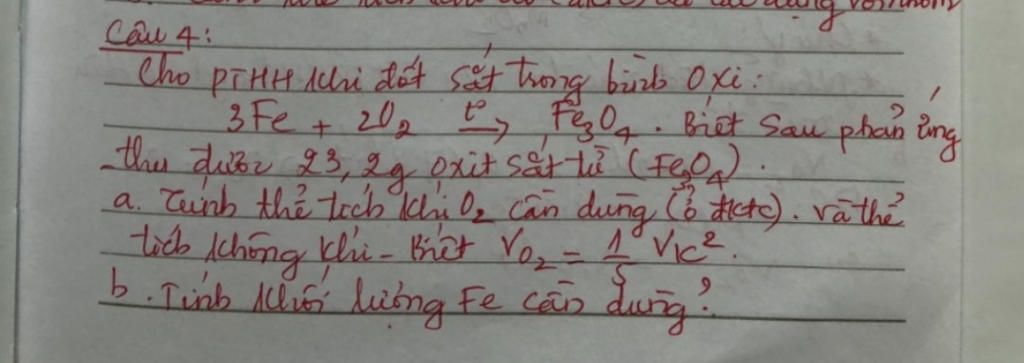 Câu 4:
Cho PTHH khi đốt sắt trong bình oxi:
3Fe + 2O2 t° → Fe3O4. Biết sau phản ứng
thu được 23,2g oxit sắt từ (Fe3O4).
a. Tính thể tích khí O2 cần dùng (ở đktc). và thể
tích không khí - Biết VO2 = 1/5 Vk2.
b. Tính khối lượng Fe cần dùng?